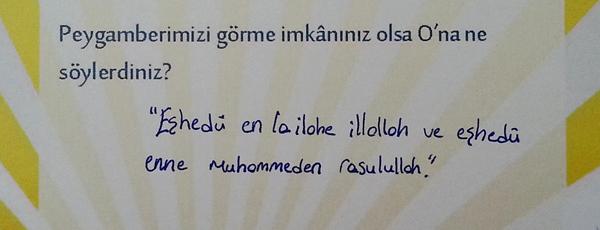 Peygamberimizi görme imkânınız olsa O'na ne
söylerdiniz?
"Eşhedü en lailahe illallah ve eşhedü
enne Muhammeden rasulullah."